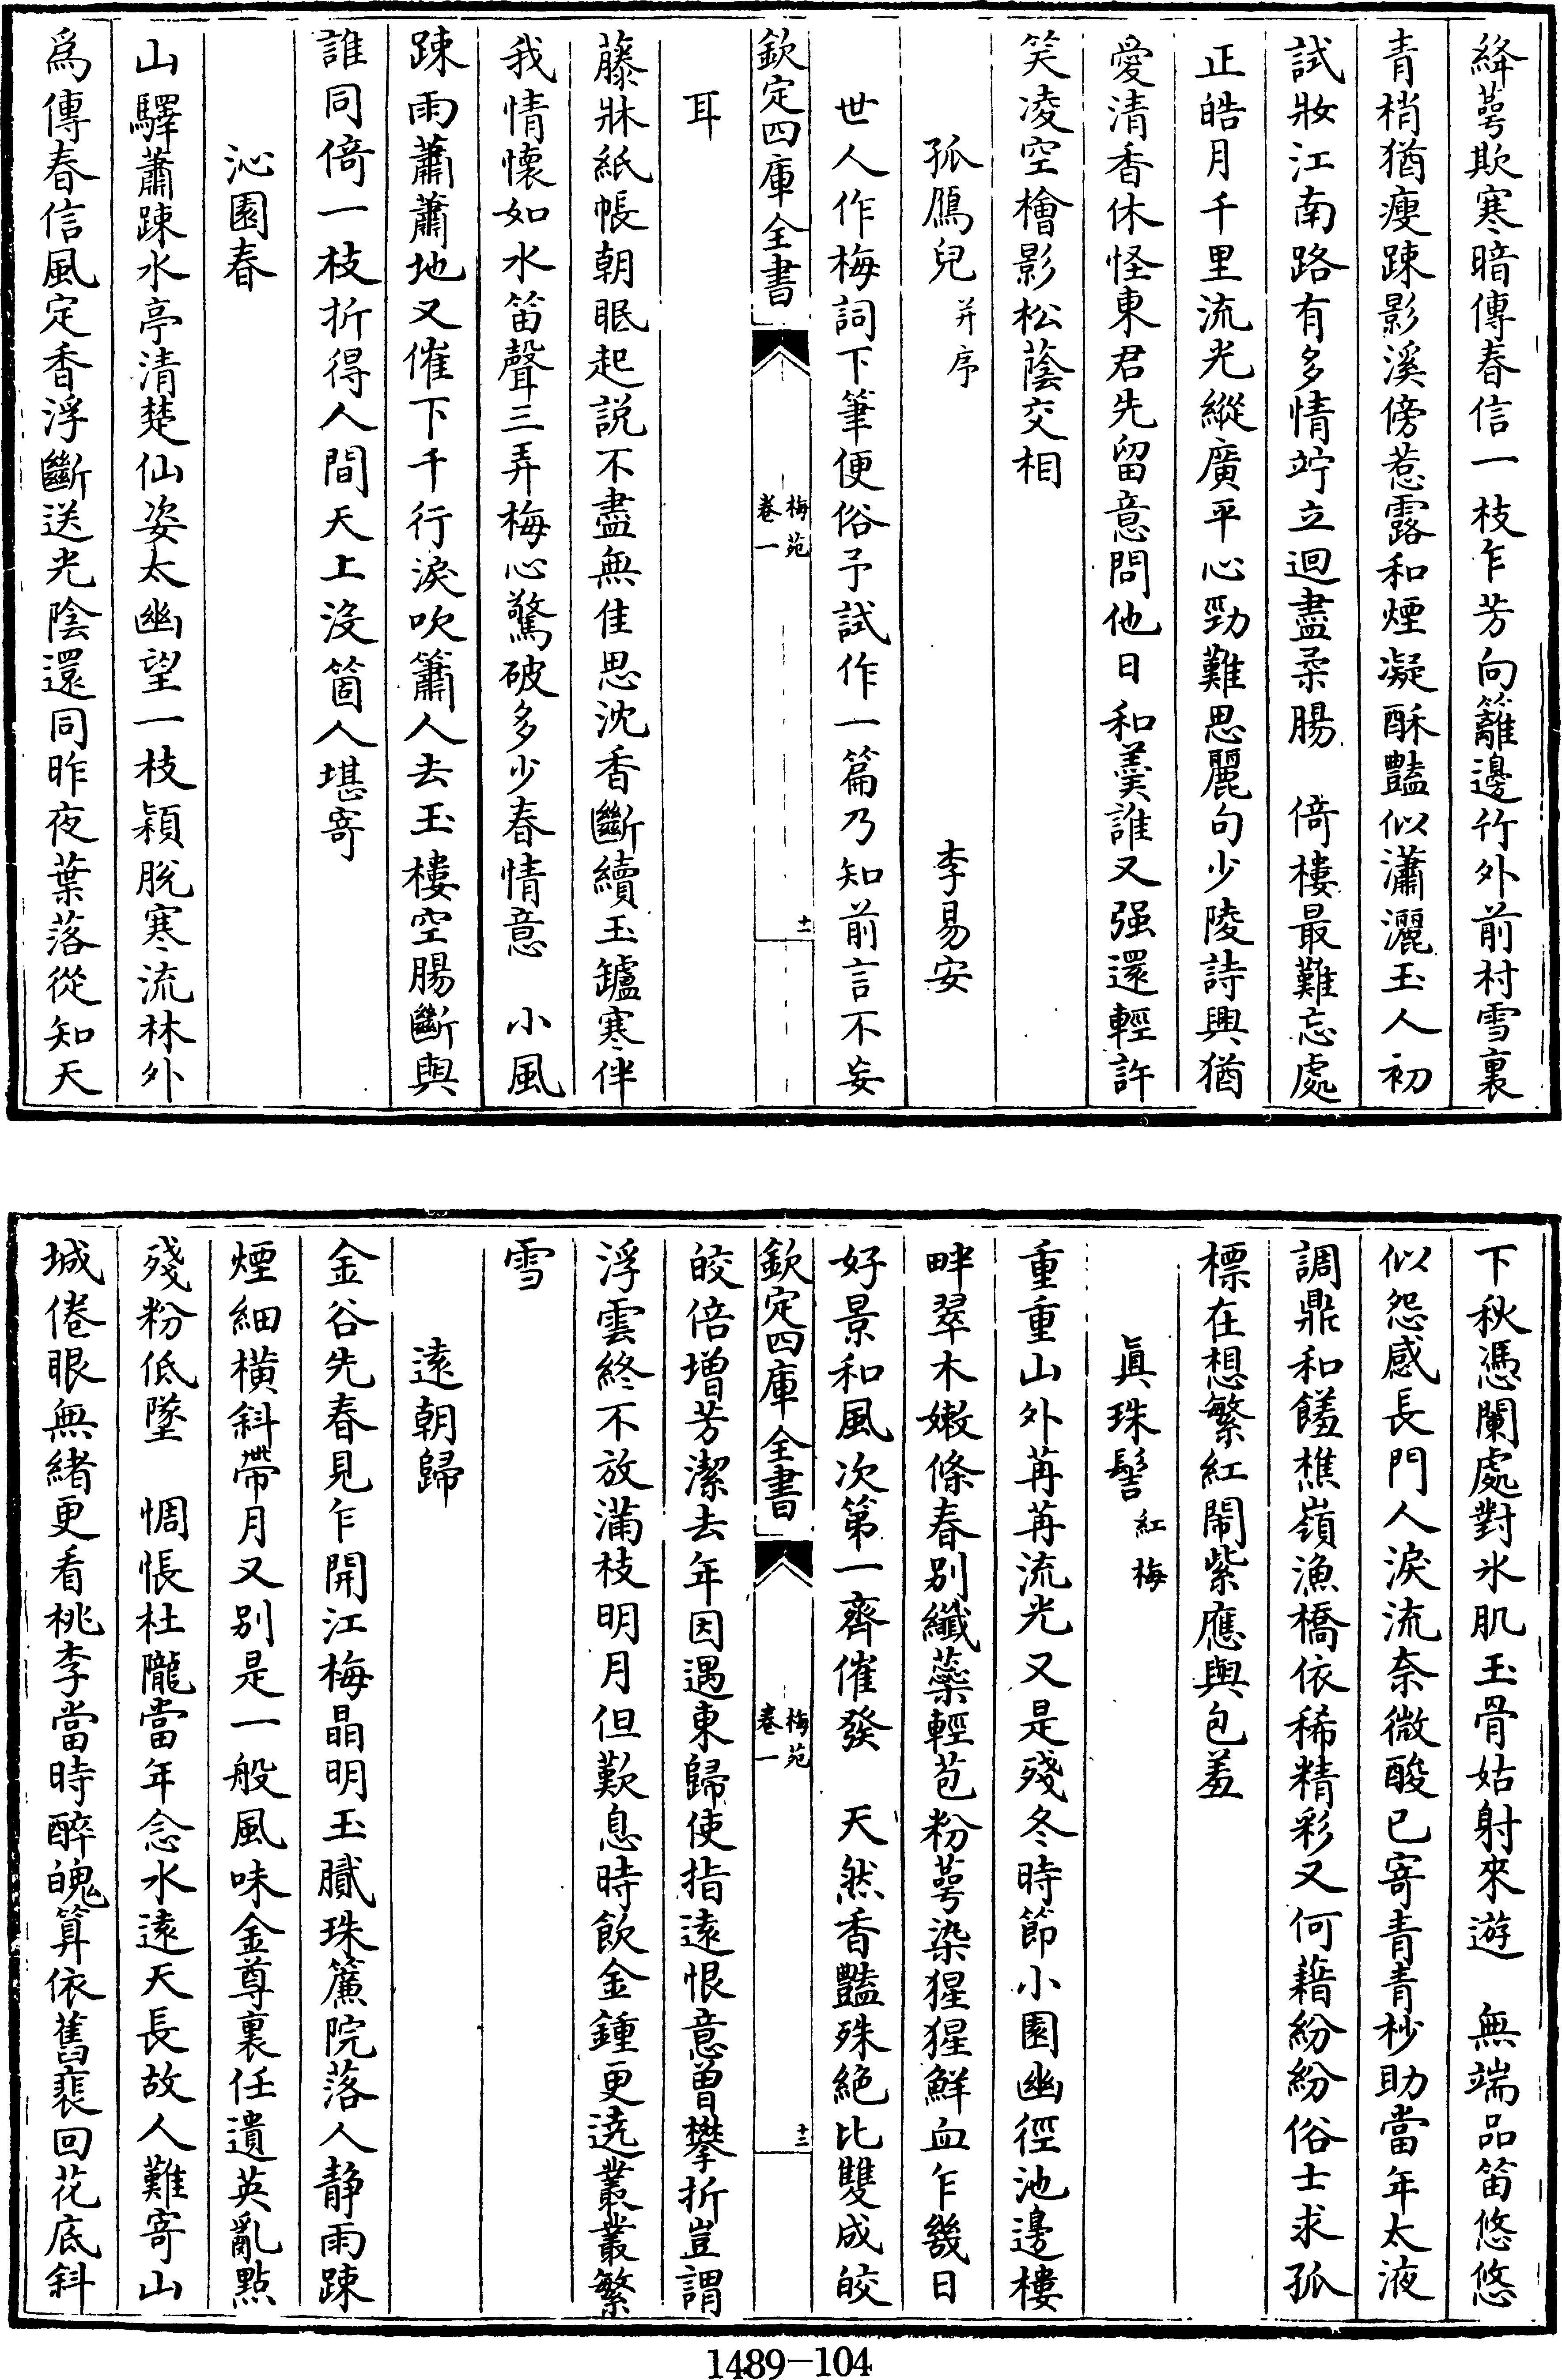 絳萼欺寒暗傳春信一枝乍芳向籬邊竹外前村雪裏
青梢猶瘦踈影溪傍惹露和煙凝酥豔似瀟灑玉人初
試妝江南路有多情竚立迴盡柔腸　倚樓最難忘處
正皓月千里流光縱廣平心勁難思麗句少陵詩興猶
愛清香休怪東君先留意問他日和羹誰又强還輕許
笑凌空檜影松蔭交相
孤鴈兒并序　李易安
世人作梅詞下筆便俗予試作一篇乃知前言不妄
欽定四庫全書　梅苑卷一　十一
耳
藤牀紙帳朝眠起説不盡無佳思沈香斷續玉鑪寒伴
我情懷如水笛聲三弄梅心驚破多少春情意　小風
踈雨蕭蕭地又催下千行淚吹簫人去玉樓空腸斷與
誰同倚一枝折得人間天上沒箇人堪寄
沁園春
山驛蕭踈水亭清楚仙姿太幽望一枝穎脫寒流林外
為傳春信風定香浮斷送光陰還同昨夜葉落從知天
下秋憑闌處對氷肌玉骨姑射來遊　無端品笛悠悠
似怨感長門人淚流奈微酸已寄青青杪助當年太液
調鼎和饈樵嶺漁橋依稀精彩又何藉紛紛俗士求孤
標在想繁紅鬧紫應與包羞
眞珠髻紅梅
重重山外苒苒流光又是殘冬時節小園幽徑池邊樓
畔翠木嫩條春别纖蘂輕苞粉萼染猩猩鮮血乍幾日
好景和風次第一齊催發　天然香豔殊絶比雙成皎
欽定四庫全書　梅苑卷一　十二
皎倍增芳潔去年因遇東歸使指遠恨意曽攀折豈謂
浮雲終不放滿枝明月但歎息時飲金鍾更遶叢叢繁
雪
逺朝歸
金谷先春見乍開江梅晶明玉膩珠簾院落人静雨踈
煙細横斜帶月又别是一般風味金尊裏任遺英亂點
殘粉低墜　惆悵杜隴當年念水遠天長故人難寄山
城倦眼無緒更看桃李當時醉魄算依舊裴回花底斜
1489-104